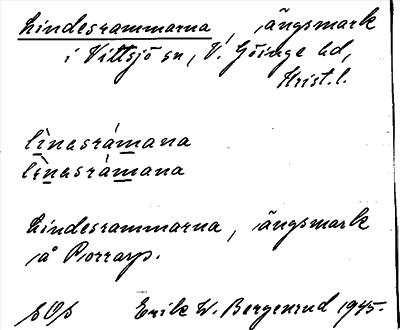 Lindesrammarna, ängsmark
i Vittsjö sn, V. Göinge hd,
Krist. l.
lìnasrámana
lìnasrámana
Lindesrammarna, ängsmark
å Porrarp.
Erik W. Bergenrud 1945.